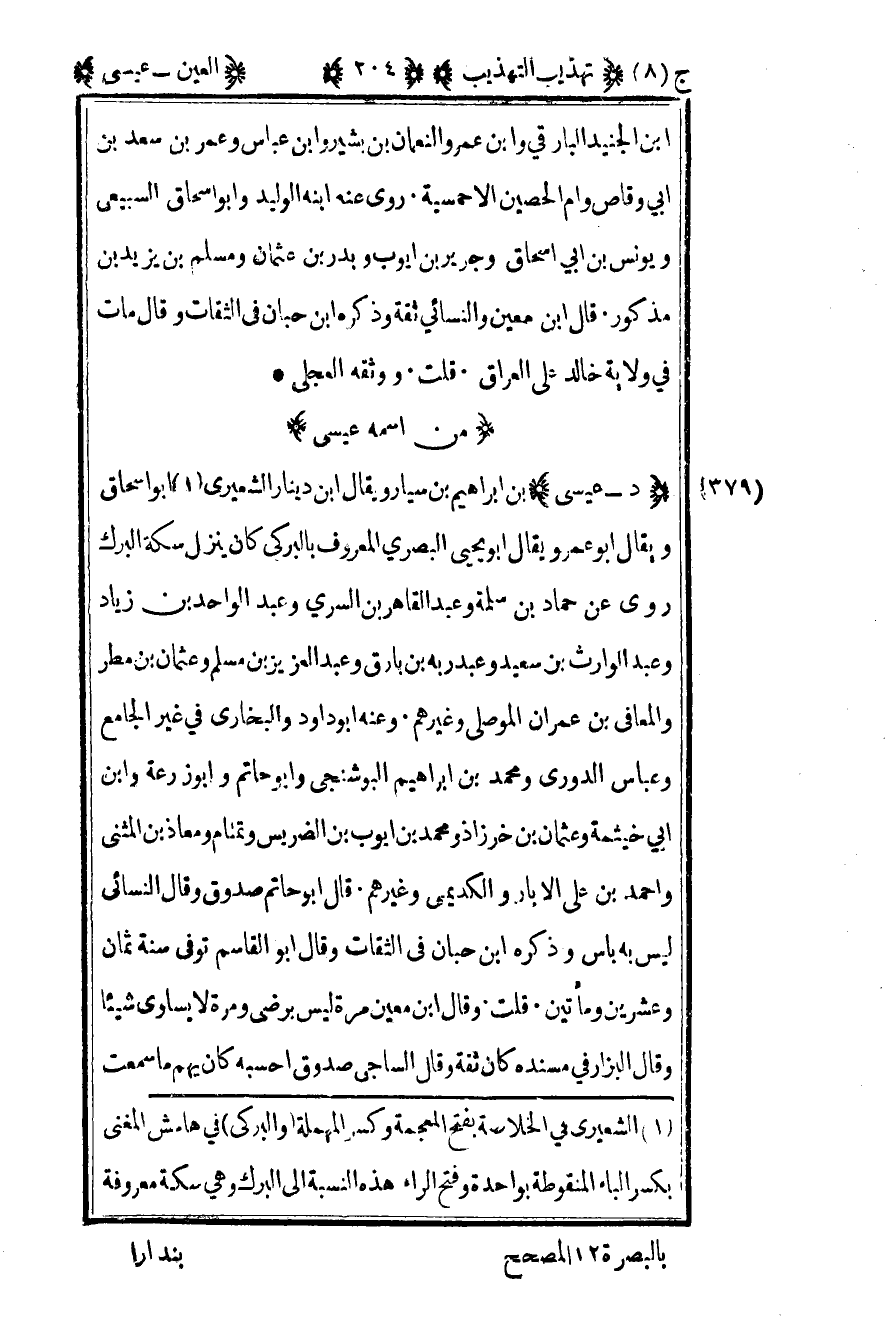 ج (٨) ﴿ تهذيب التهذيب ﴾ ﴿ ٢٠٤ ﴾ ﴿ العين ـ عيسى ﴾
ابن الجنيد البارقي وابن عمرو النعمان بن بشير وابن عباس وعمر بن سعد بن
ابي وقاص وام الحصين الاحمسية ٠ روى عنه ابنه الوليد وابو اسحاق السبيعى
ويونس بن ابي اسحاق وجرير بن ايوب وبدر بن عثمان ومسلم بن يزيد بن
مذكور ٠ قال ابن معين والنسائي ثقة وذكره ابن حبان فى الثقات وقال مات
في ولاية خالد على العراق ٠ قلت ٠ ووثقه العجلى ●
﴿ من اسمه عيسى ﴾
(٣٧٩) ﴿ د ـ عيسى ﴾ بن ابراهيم بن سيار ويقال ابن دينار الشعيرى (١) ابو اسحاق
ويقال ابو عمرو يقال ابو يحيى البصري المعروف بالبركى كان ينزل سكة البرك
روى عن حماد بن سلمة وعبد القاهر بن السري وعبد الواحد بن زياد
وعبد الوارث بن سعيد وعبد ربه بن بارق وعبد العزيز بن مسلم وعثمان بن مطر
والمعافى بن عمران الموصلى وغيرهم ٠ وعنه ابو داود والبخارى في غير الجامع
وعباس الدورى ومحمد بن ابراهيم البوشنجى وابو حاتم وابو زرعة وابن
ابي خيثمة وعثمان بن خرزاذ ومحمد بن ايوب بن الضريس وتمتام ومعاذ بن المثنى
واحمد بن على الابار والكديمى وغيرهم ٠ قال ابو حاتم صدوق وقال النسائى
ليس به باس وذكره ابن حبان فى الثقات وقال ابو القاسم توفى سنة ثمان
وعشرين ومأتين ٠ قلت ٠ وقال ابن معين مرة ليس برضى ومرة لا يساوى شيئا
وقال البزار في مسنده كان ثقة وقال الساجى صدوق احسبه كان يهم ما سمعت
(١) الشعيرى في الخلاصة بفتح المعجمة وكسر المهملة (والبركى) في هامش المغنى
بكسر الباء المنقوطة بواحدة وفتح الراء هذه النسبة الى البرك وهي سكة معروفة
بالبصرة ١٢ المصحح بندارا